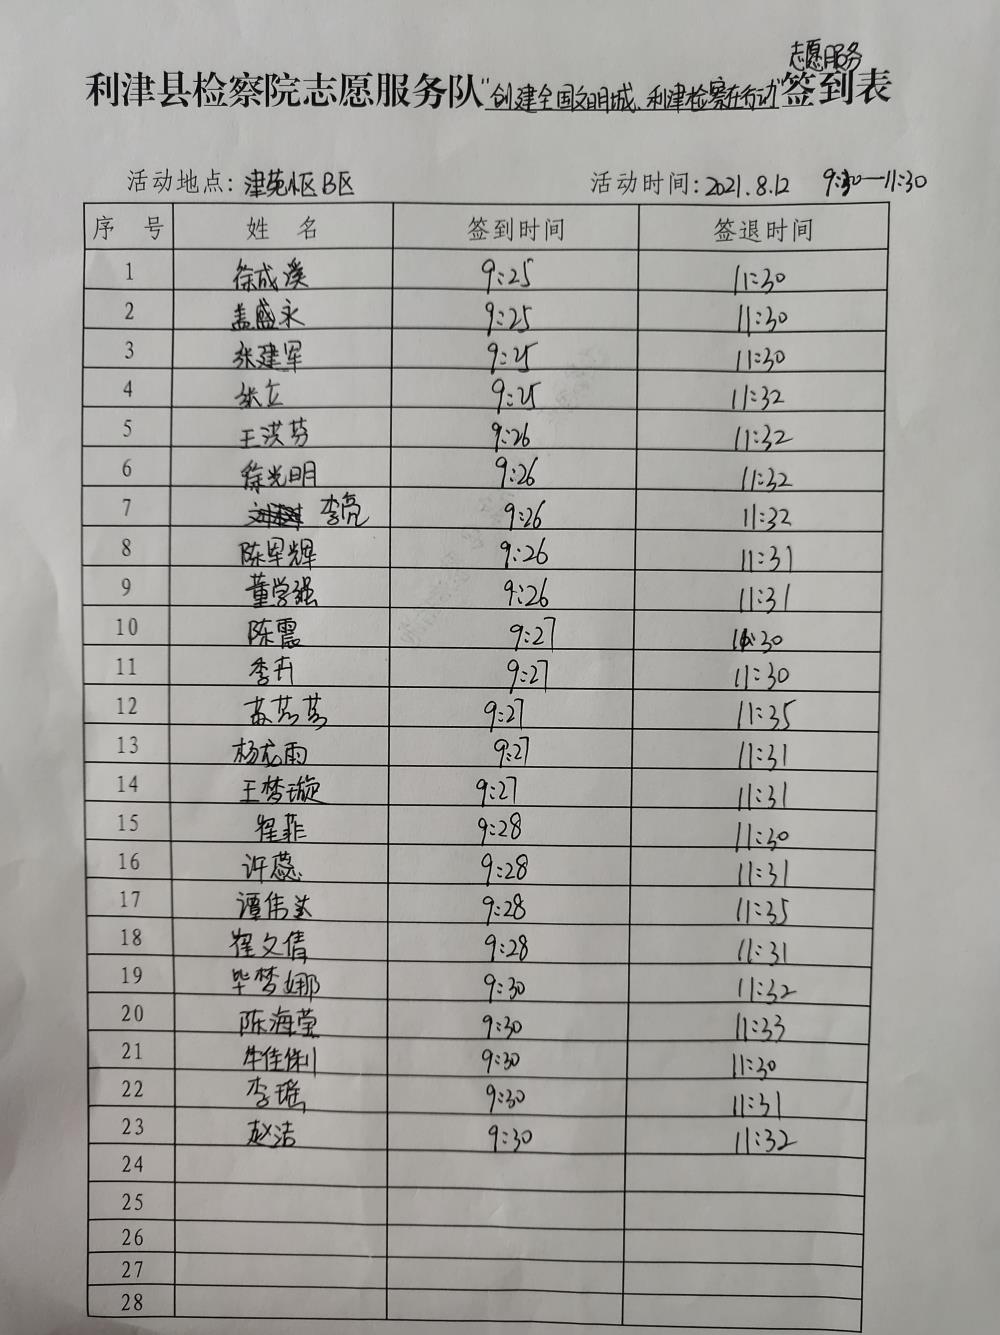 志愿服务
利津县检察院志愿服务队"创建全国文明城、利津检察在行动"签到表
活动地点:津苑小区B区 活动时间:2021.8.12 9:30—11:30
序 号 姓 名 签到时间 签退时间
1 徐成溪 9:25 11:30
2 盖盛永 9:25 11:30
3 张建军 9:25 11:30
4 张立 9:25 11:32
5 王洪芬 9:26 11:32
6 徐光明 9:26 11:32
7 李亮 9:26 11:32
8 陈军辉 9:26 11:31
9 董学强 9:26 11:31
10 陈震 9:27 11:30
11 李卉 9:27 11:30
12 9:27 11:35
13 杨龙雨 9:27 11:31
14 王梦璇 9:27 11:31
15 崔菲 9:28 11:30
16 许蕊 9:28 11:31
17 谭伟 9:28 11:35
18 崔文倩 9:28 11:31
19 毕梦娜 9:30 11:32
20 陈海莹 9:30 11:33
21 牛佳俐 9:30 11:30
22 李瑶 9:30 11:31
23 赵洁 9:30 11:32
24
25
26
27
28